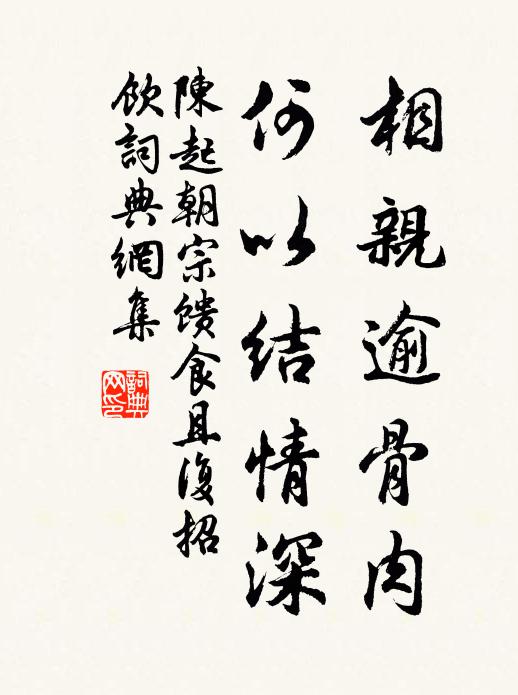 相親逾骨肉
何以結情深
陳起朝宗馈食且復招
飲詞典網集
詞典
网印